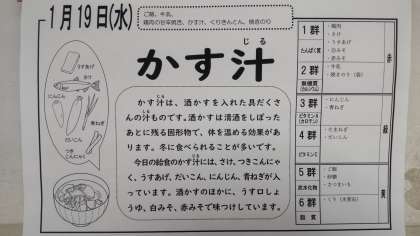 1月19日(水)
ご飯、牛乳、
鶏肉の甘辛焼き、かす汁、くりきんとん、焼きのり
かす汁
じる
うすあげ
さけ
にんじん
青ねぎ
だいこん
つき
こんにゃく
かす汁は、酒かすを入れた具だくさ
んの汁ものです。酒かすは清酒をしぼった
あとに残る固形物で、体を温める効果があ
ります。冬に食べられることが多いです。
今日の給食のかす汁には、さけ、つきこんにゃ
く、うすあげ、だいこん、にんじん、青ねぎが入
っています。酒かすのほかに、うす口しょ
うゆ、白みそ、赤みそで味つけしています。
1群
たんぱく質
・鶏肉
・さけ
・うすあげ
・白みそ
・赤みそ
2群
無機質
(カルシウム)
・牛乳
・焼きのり
赤
3群
ビタミンA
(カロテン)
・にんじん
・青ねぎ
4群
ビタミンC
・だいこん
緑
5群
炭水化物
・ご飯
・砂糖
・さつまいも
6群
脂質
・くり
黄